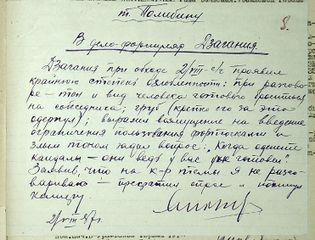 т. Полибину
8.
В дело-формуляр Дзагания
Дзагания при обходе 2/VIII-с/г проявил
крайнюю степень озлобленности: при разгово-
ре – тон и вид человека готового броситься
на собеседника; груб (крепко его за это
одернул); выразил возмущение на введение
ограничения пользования форточками и
злым тоном задал вопрос: „Когда оденете
кандалы – они ведь у вас уж готовы".
Заявив, что на к-р темы я не разго-
вариваю – прекратил спрос и покинул
камеру
2/VIII-47г.